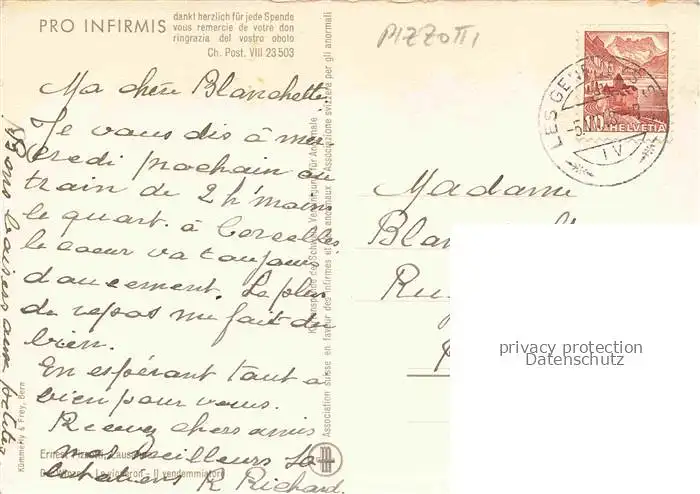 PRO INFIRMIS
dankt herzlich für jede Spende
vous remercie de votre don
ringrazia del vostro obolo
Ch. Post. VIII 23503
PIZZOTTI
Ma chère Blanchette,
Je vous dis à mer
credi prochain au
train de 2 h moins
le quart. à Corcelles,
le coeur va toujours
doucement. Le plus
de repos me fait du
bien.
En espérant tout à
bien pour vous.
Recevez chers amis
mes meilleurs Sa
lutations R Richard.
Bons baisers aux petites
Kartenspende der Schweiz. Vereinigung für Anormale
Association suisse en faveur des infirmes et des anormaux - Associazione svizzera per gli anormali
Kümmerly & Frey, Bern
Ernest Pizzotti, Lausanne
Le vigneron - Il vendemmiatore
LES GENE
IV
10 HELVETIA
Madame
Blan
Ru
privacy protection
Datenschutz